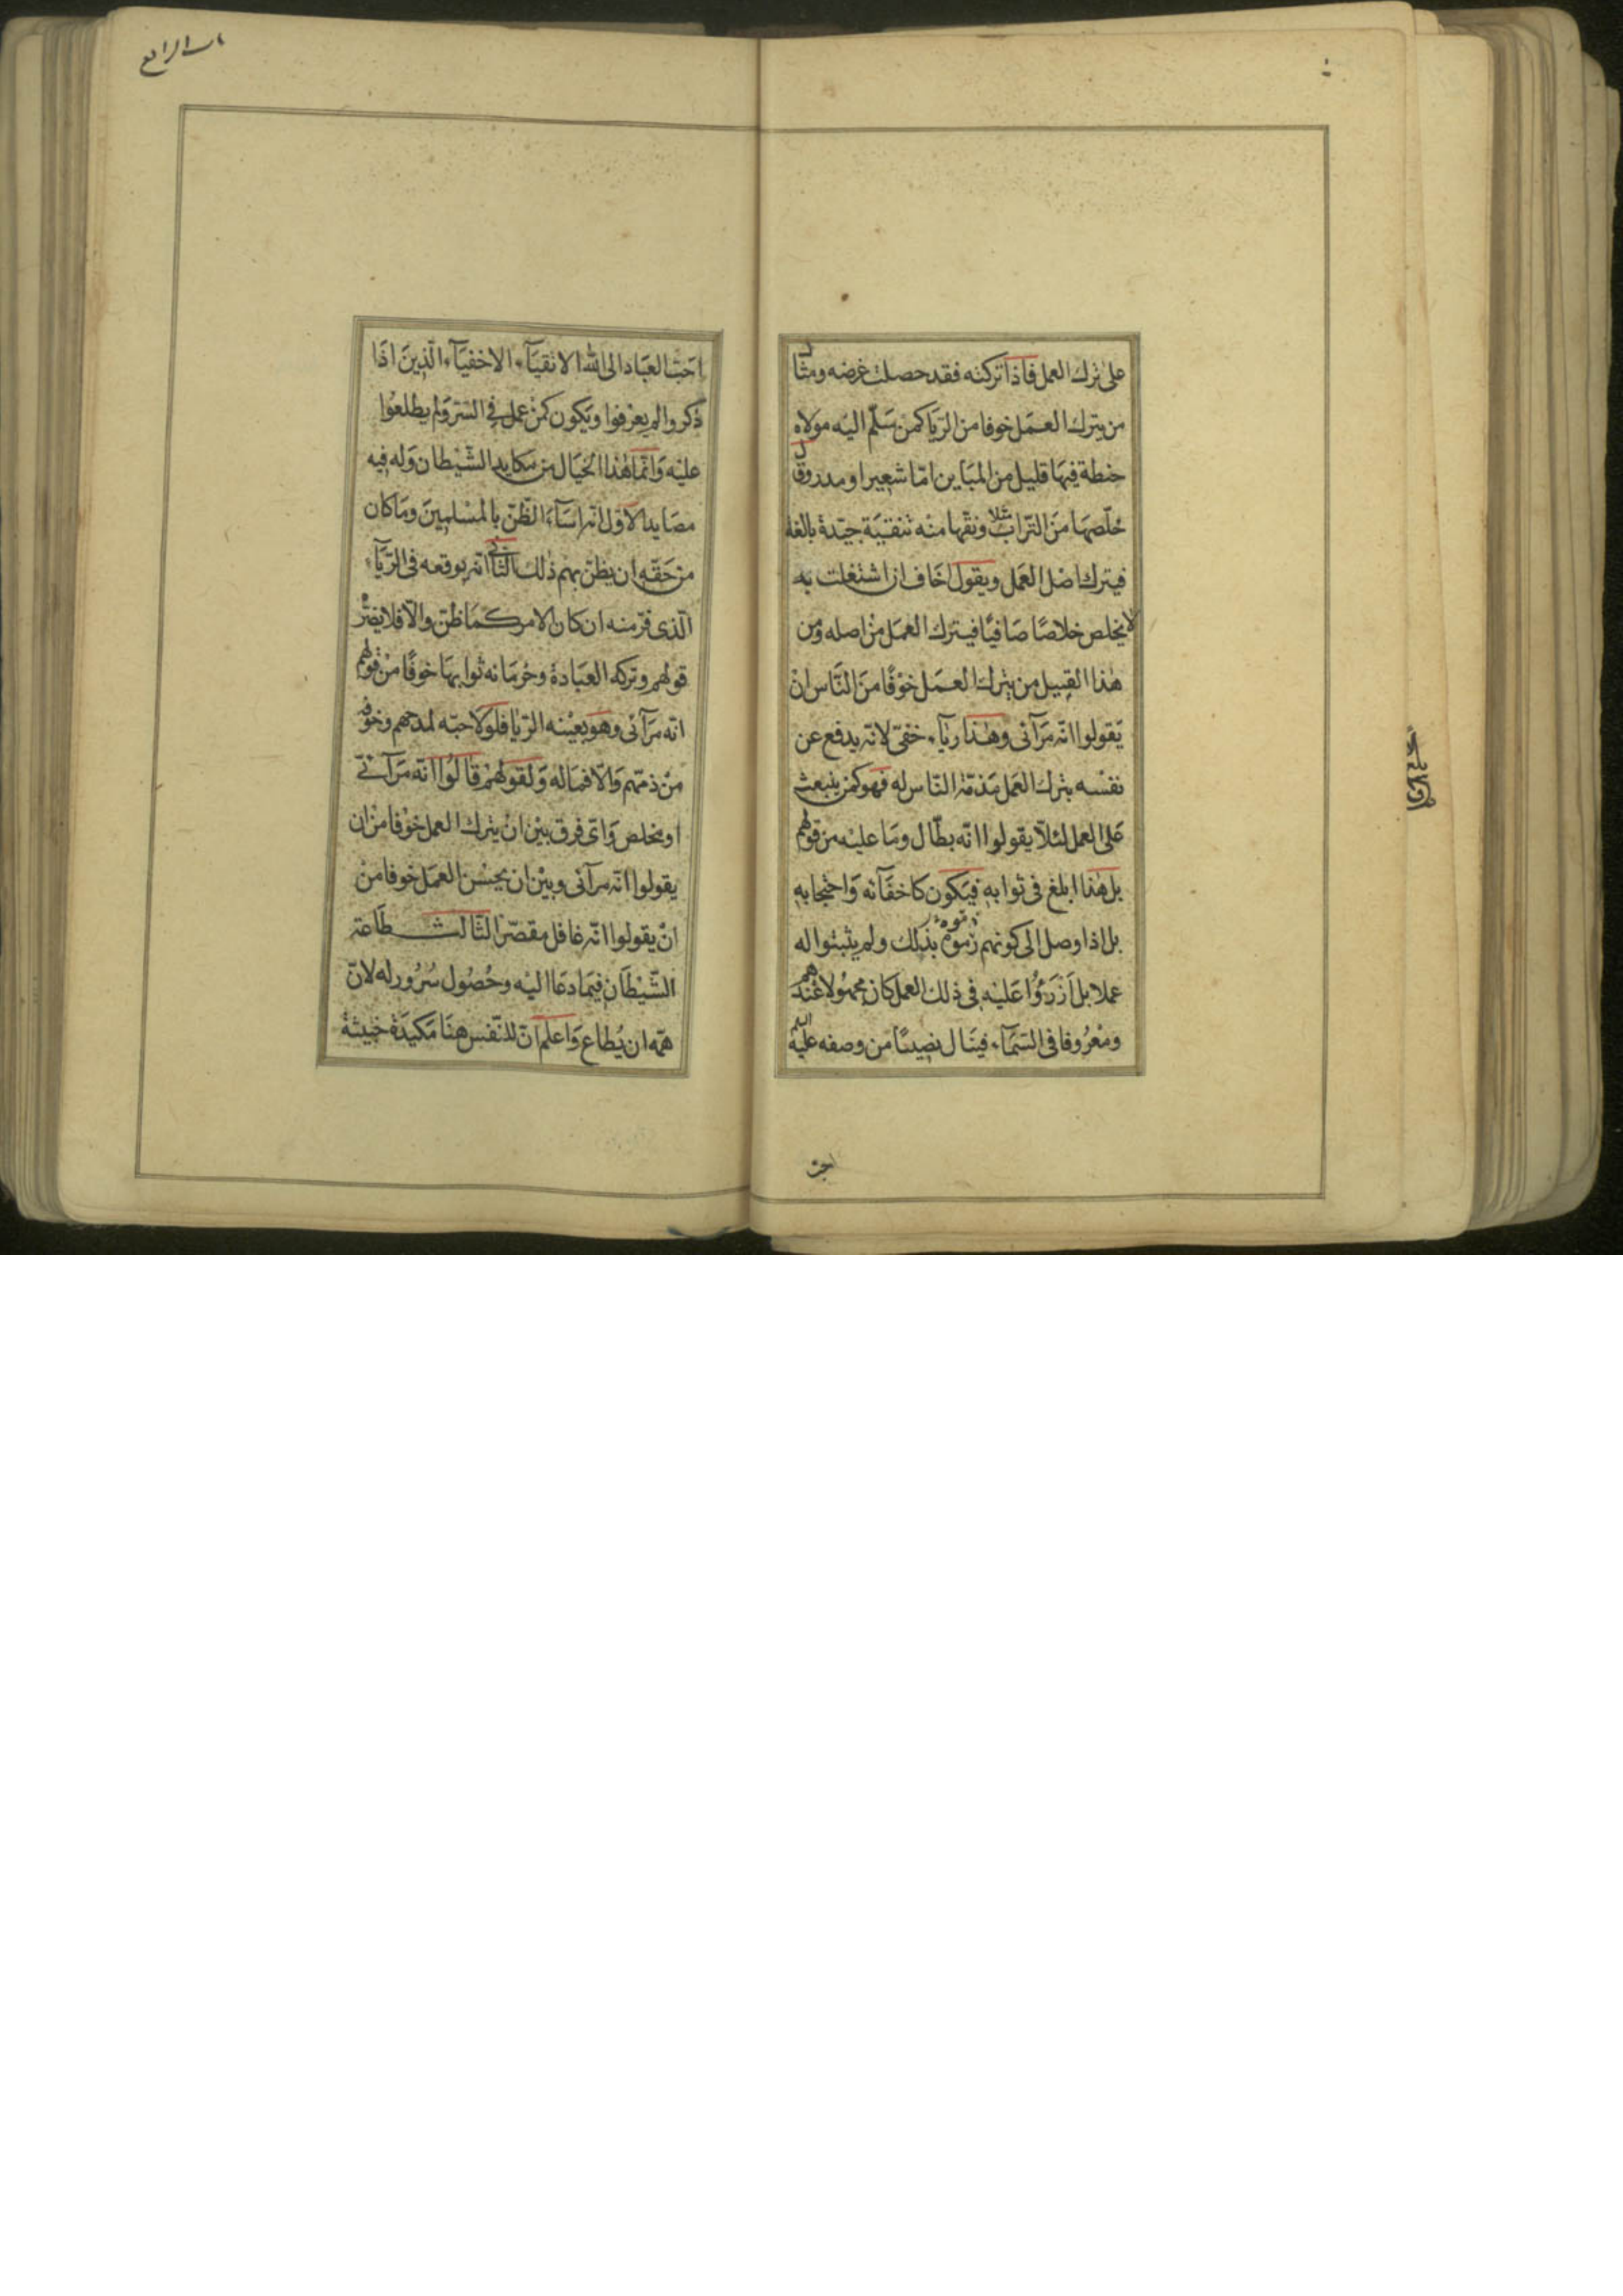 على ترك العمل فاذا تركته فقد حصلت غرضه ومثال
من يترك العمل خوفا من الريا كمن سلّم اليه مولاه
حنطة فيها قليل من المباين امّا شعير او مدر وقال
خلّصها من التراب مثلا ونقّها منه تنقية جيّدة بالغة
فيترك اصل العمل ويقول اخاف ان اشتغلت به
لا يخلص خلاصًا صافيًا فيترك العمل من اصله ومن
هذا القبيل من يترك العمل خوفًا من النّاس ان
يقولوا انّه مرآئى وهذا رياء خفىّ لانّه يدفع عن
نفسه بترك العمل مذمّة النّاس له فهو كمن ينبعث
على العمل لئلّا يقولوا انّه بطّال وما عليه من قولهم
بل هذا ابلغ فى ثوابه فيكون كاخفآئه واحتجابه
بل اذا وصل الى كونهم بذلك ولم يثبتوا له
عملا بل ازرؤا عليه فى ذلك العمل كان مجهولا عندهم
ومعروفا فى السمآء فينال نصيبًا من وصفه عليه السلم
احبّ
باب الرابع
احبّ العباد الى الله الاتقيآء الاخفيآء الّذين اذا
ذكروا لم يعرفوا ويكون كمن عمل فى السّر ولم يطلعوا
عليه وانّما هذا الخيال من مكايد الشّيطان وله فيه
مصايد الاوّل انّه اسآءة الظّنّ بالمسلمين وما كان
من حقّه ان يظنّ بهم ذلك الثّانى انّه يوقعه فى الرّيآء
الّذى فرّ منه ان كان الامر كما ظنّ والّا فلا يضرّه
قولهم وتركه العبادة وحرمانه ثوابها خوفًا من قولهم
انّه مرآئى وهو بعينه الرّيا فلولا حبّه لمدحهم وخوفه
من ذمّهم والّا فما له ولقولهم قالوا انّه مرآئى
او مخلص واىّ فرق بين ان يترك العمل خوفا من ان
يقولوا انّه مرآئى وبين ان يحسن العمل خوفا من
ان يقولوا انّه غافل مقصّر الثالث طاعة
الشّيطان فيما دعا اليه وحصول سرور له لانّ
همّه ان يُطاع واعلم انّ للنّفس هنا مكيدة خبيثة